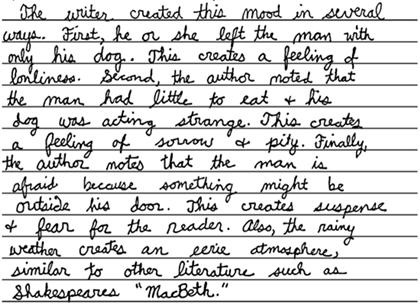 The writer created this mood in several
ways. First, he or she left the man with
only his dog. This creates a feeling of
lonliness. Second, the author noted that
the man had little to eat & his
dog was acting strange. This creates
a feeling of sorrow & pity. Finally,
the author notes that the man is
afraid because something might be
outside his door. This creates suspense
& fear for the reader. Also, the rainy
weather creates an eerie atmosphere,
similar to other literature such as
Shakespeares "MacBeth."